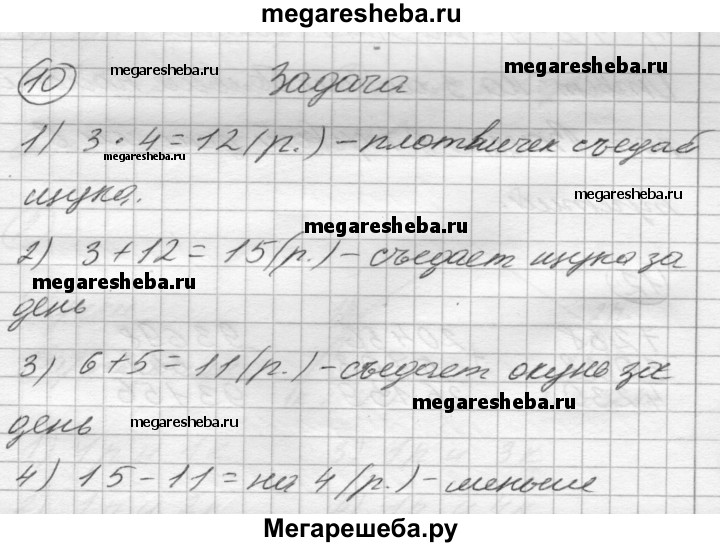 megaresheba.ru
10 megaresheba.ru Задача megaresheba.ru
1) 3 · 4 = 12 (р.) – плотвичек съедает
megaresheba.ru
щука. megaresheba.ru
megaresheba.ru
2) 3 + 12 = 15 (р.) – съедает щука за
megaresheba.ru
день
3) 6 + 5 = 11 (р.) – съедает окунь за
megaresheba.ru
день megaresheba.ru
4) 15 – 11 = на 4 (р.) – меньше
Мегарешеба.ру